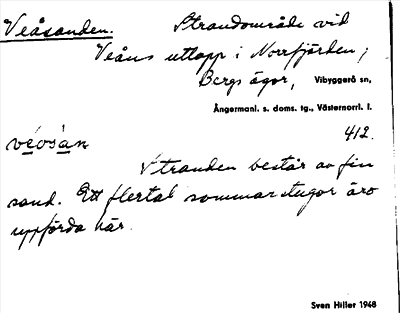 Veåsanden. Strandområde vid
Veåns utlopp i Norrfjärden;
Bergs ägor, Vibyggerå sn,
Ångermanl. s. doms. tg., Västernorrl. l.
412.
véosàn
Stranden består av fin
sand. Ett flertal sommarstugor äro
uppförda här.
Sven Hiller 1948